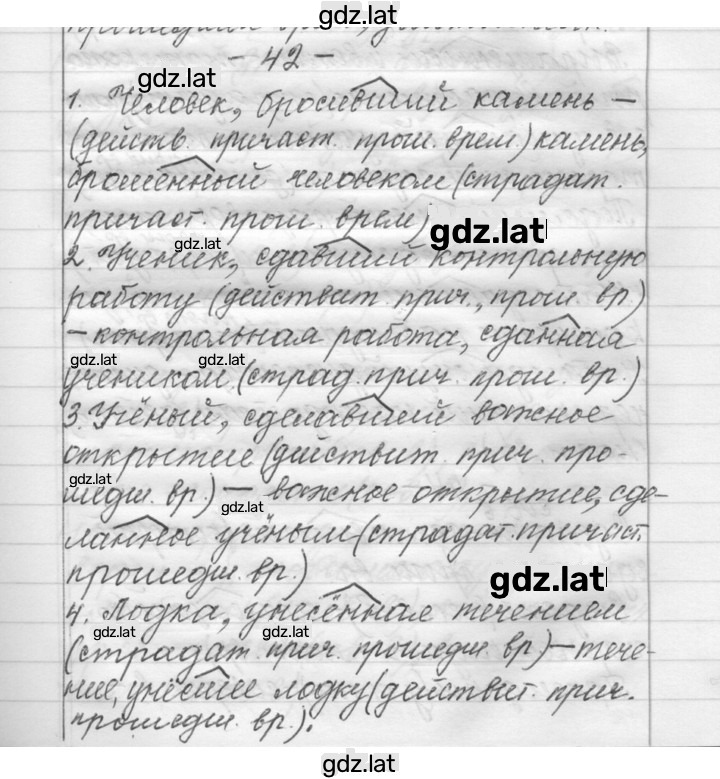 gdz.lat
- 42 -
gdz.lat
1. Человек, бросивший камень –
(действ. причаст. прош. врем.) камень,
брошенный человеком (страдат.
причаст. прош. врем)
gdz.lat
gdz.lat
2. Ученик, сдавший контрольную
работу (действит. прич., прош. вр.)
– контрольная работа, сданная
gdz.lat gdz.lat
учеником (страд. прич. прош. вр.)
3. Учёный, сделавший важное
открытие (действит. прич. про-
gdz.lat
шедш. вр.) – важное открытие, сде-
gdz.lat
ланное учёным (страдат. причаст.
прошедш. вр.)
gdz.lat
4. Лодка, унесённая течением
gdz.lat gdz.lat
(страдат. прич. прошедш. вр) – тече-
ние, унёсшее лодку (действит. прич.
прошедш. вр.).
gdz.lat